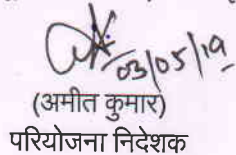 03/05/19
(अमीत कुमार)
परियोजना निदेशक